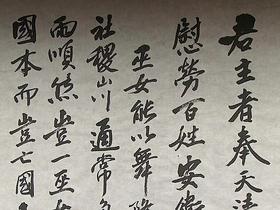 君主者奉天法
慰勞百姓安衛
巫女能以舞降
社稷山川通常
雨順焉豈一巫女
國本而豈亡國